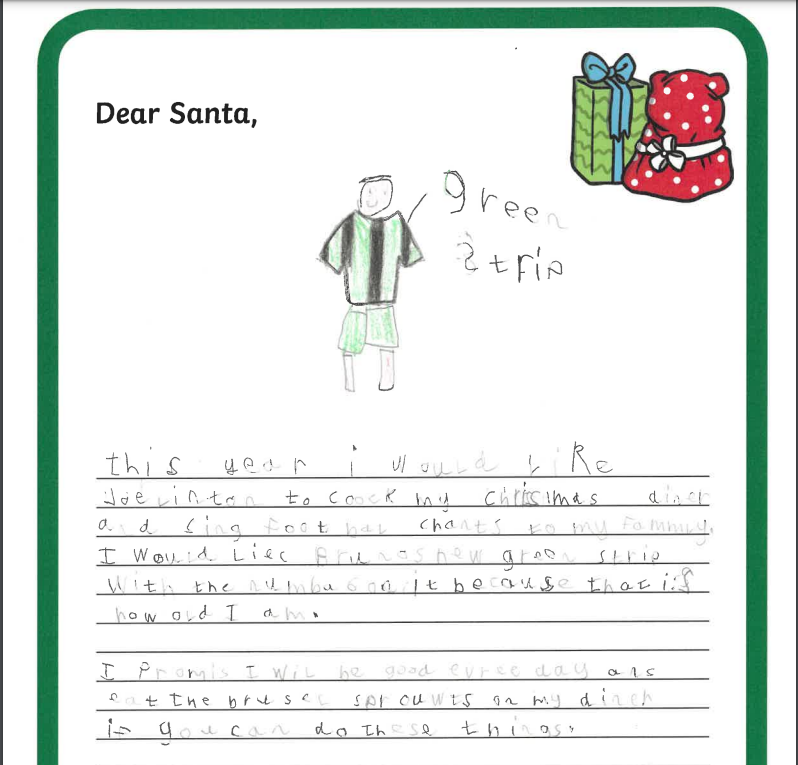 Dear Santa,
green
strip
this year i would like
Joelinton to coock my christmas diner
and sing foot bal chants to my fammily.
I would Liec Brunos new green strip
with the numbu 6 on it because that is
how old I am.
I Promis I wil be good evree day ans
eat the brusel sprouwts on my diner
if you can do these things.